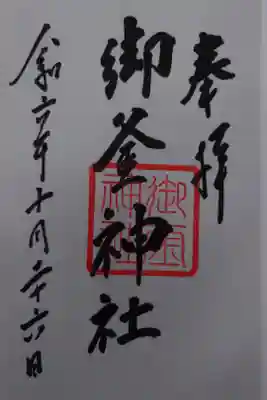 奉拝
御釜神社
令和六年十月二十六日
御釜
神社